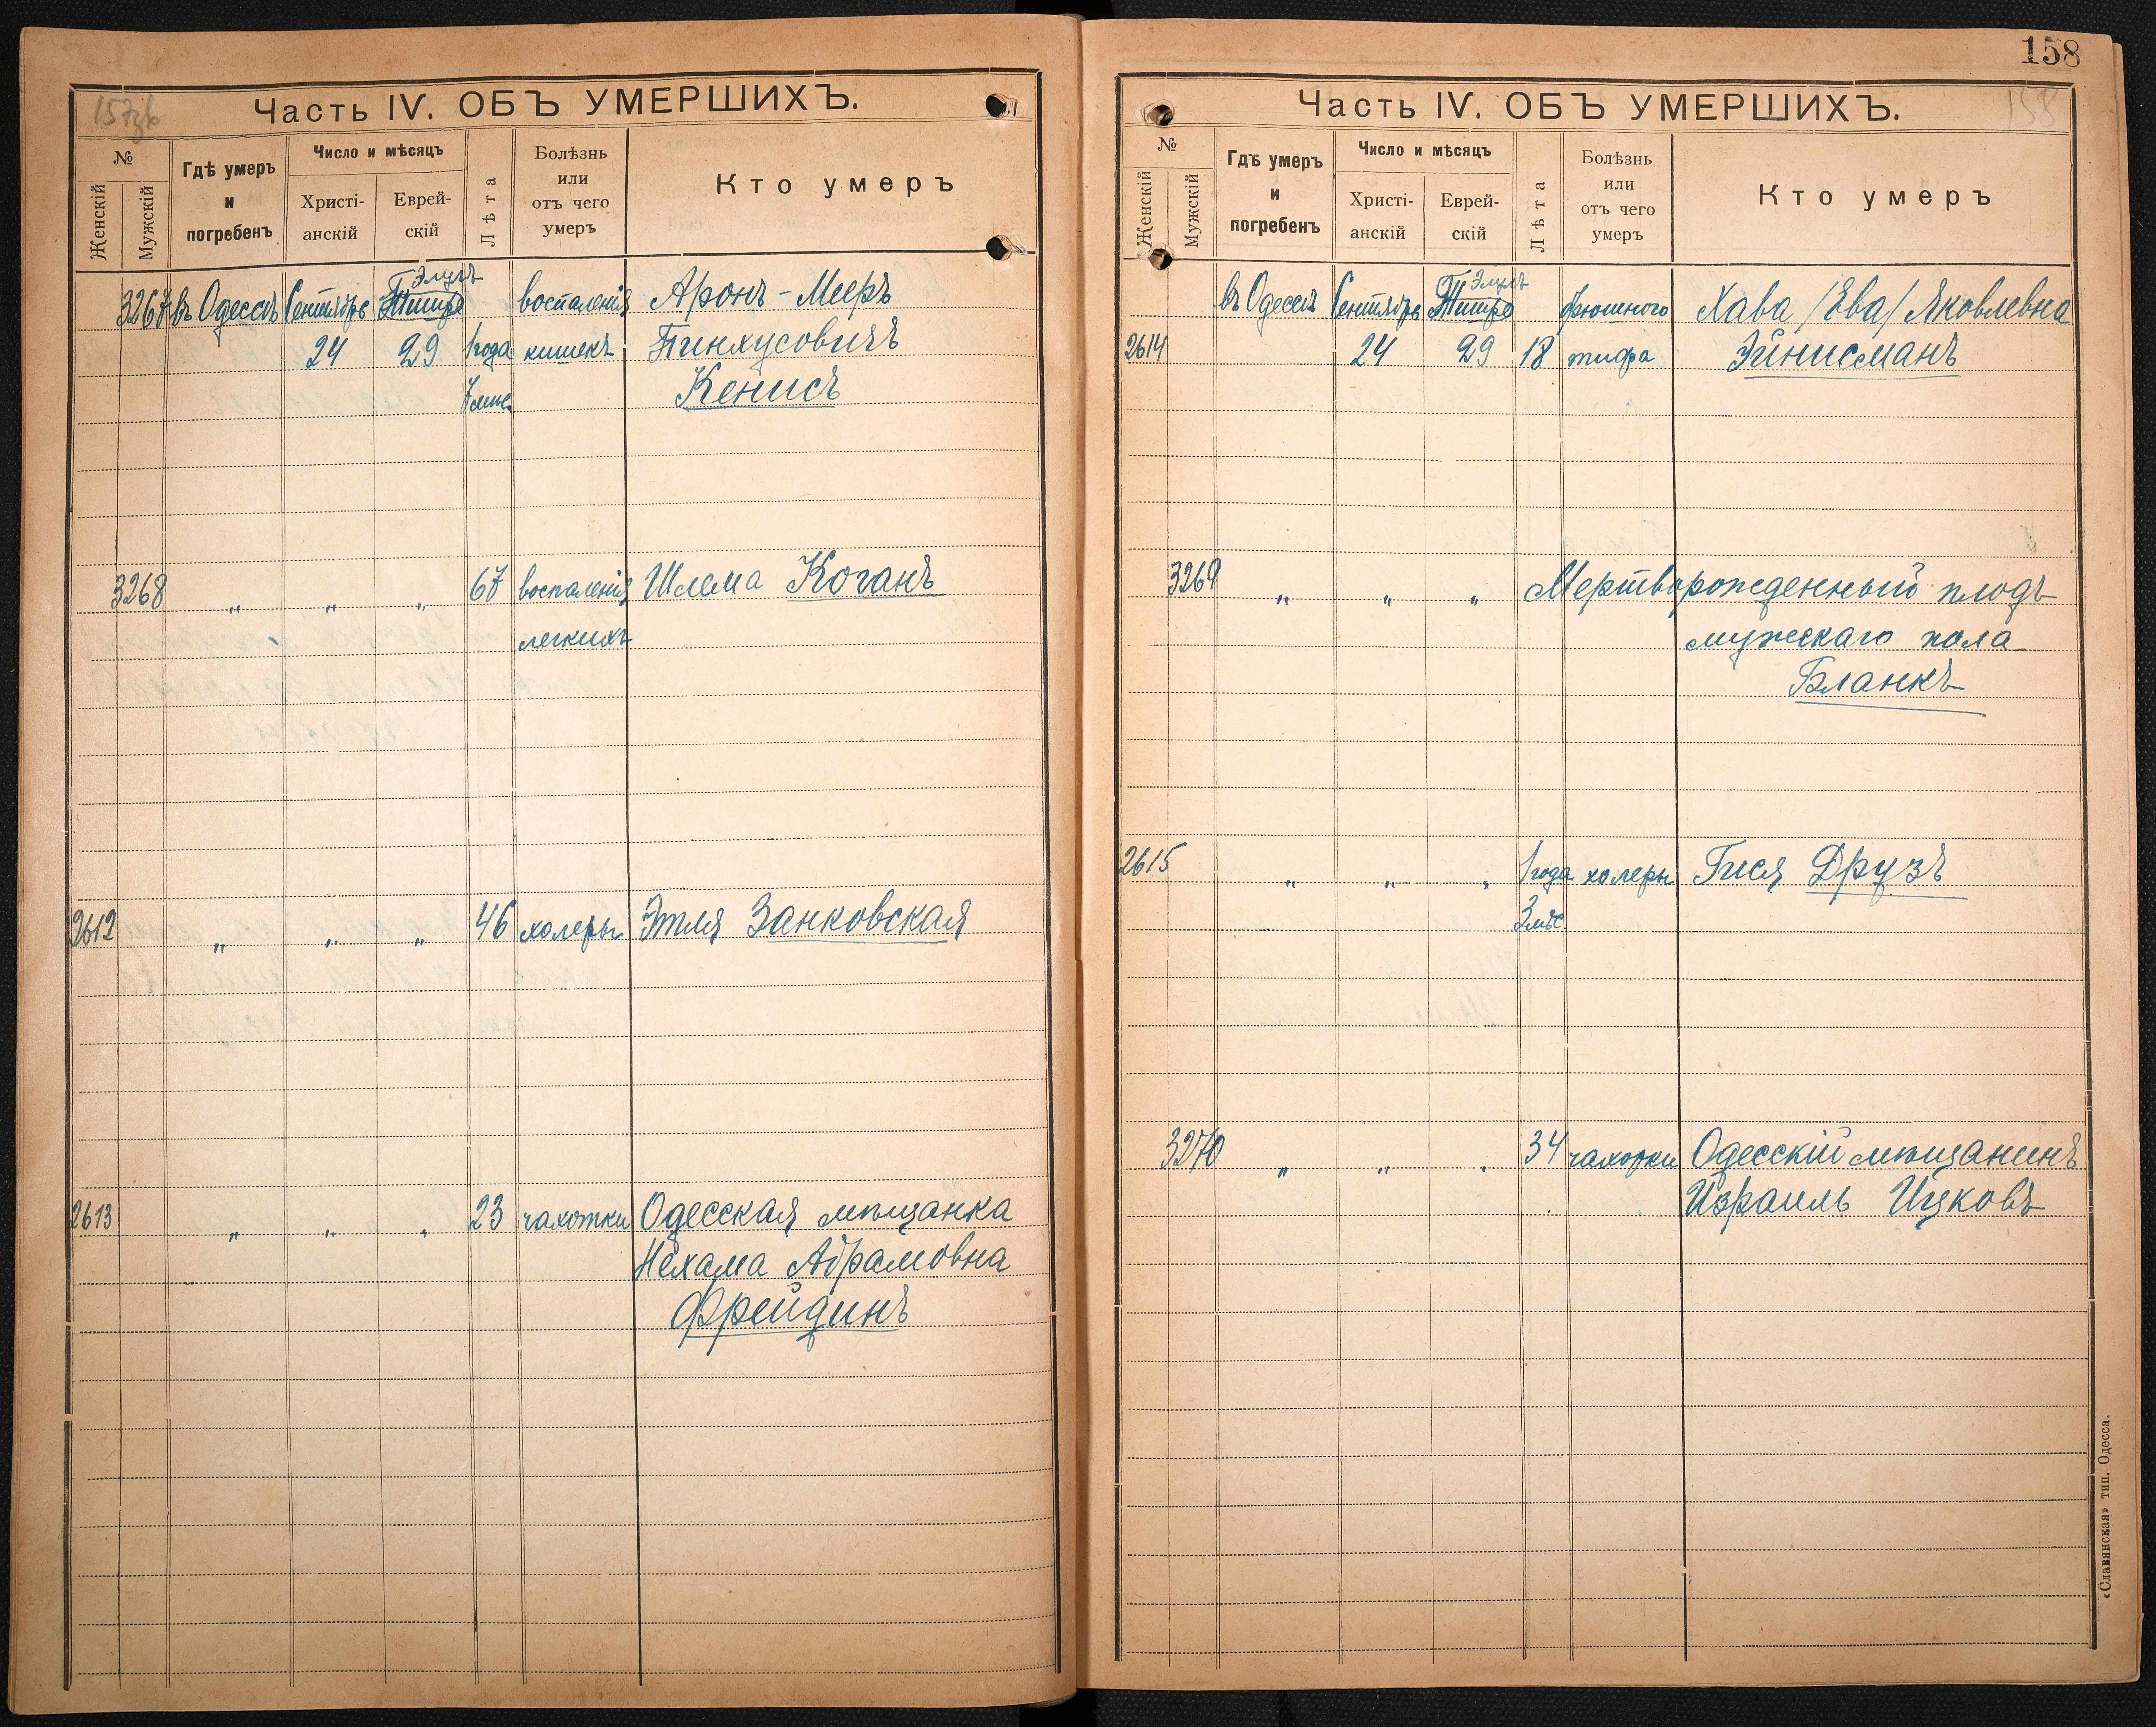 157об
Часть IV. ОБЪ УМЕРШИХЪ.
№
Женскій
Мужскій
Гдѣ умеръ
и
погребенъ
Число и мѣсяцъ
Христі-
анскій
Еврей-
скій
Лѣта
Болѣзнь
или
отъ чего
умеръ
Кто умеръ
Элулъ
3267 въ Одессѣ Сентябрь Тишре воспаленія Аронъ-Мееръ
24 29 1 года кишекъ Пинхусовичъ
7 мѣс. Кенисъ
3268 „ „ „ 67 воспаленія Шлема Коганъ
легкихъ
2612 „ „ „ 46 холеры Этля Занковская
2613 „ „ „ 23 чахотки Одесская мѣщанка
Нехама Абрамовна
Фрейдинъ
158
158
Часть IV. ОБЪ УМЕРШИХЪ.
№
Женскій
Мужскій
Гдѣ умеръ
и
погребенъ
Число и мѣсяцъ
Христі-
анскій
Еврей-
скій
Лѣта
Болѣзнь
или
отъ чего
умеръ
Кто умеръ
Элулъ
въ Одессѣ Сентябрь Тишре брюшного Хава /Ева/ Яковлевна
2614 24 29 18 тифа Эйнисманъ
3269 „ „ „ Мертворожденный плодъ
мужскаго пола
Бланкъ
2615 „ „ „ 1 года холеры Гися Друзъ
3 мѣс.
3270 „ „ „ 34 чахотки Одесскій мѣщанинъ
Израиль Ицковъ
«Славянская» тип. Одесса.